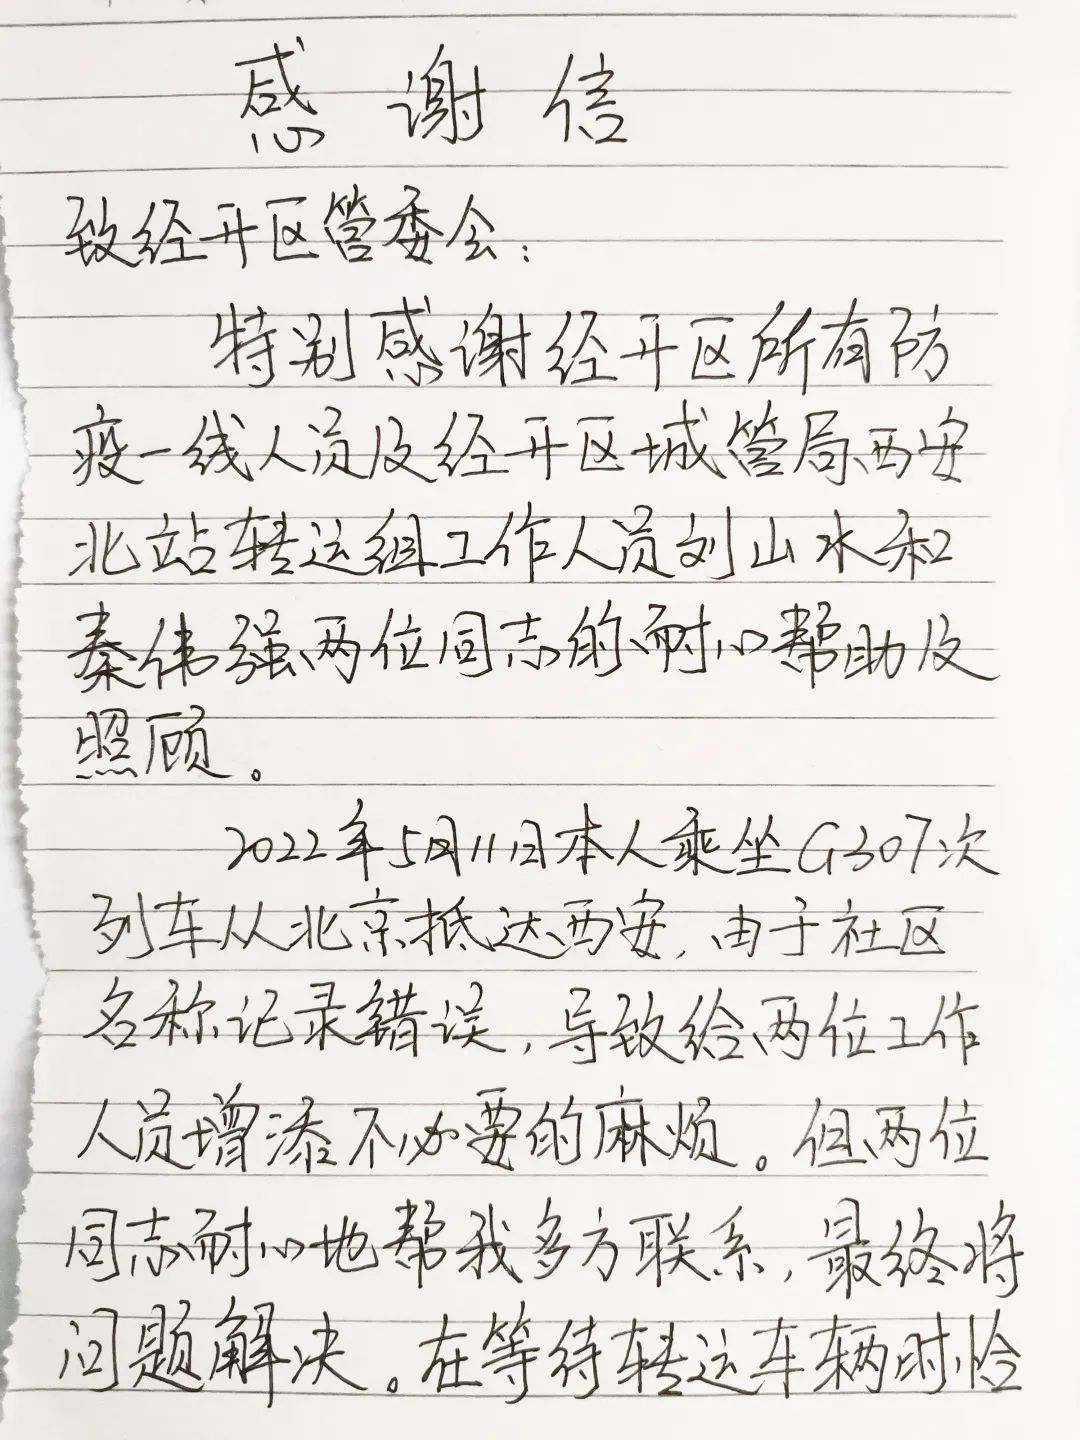 感谢信
致经开区管委会：
特别感谢经开区所有防
疫一线人员及经开区城管局西安
北站转运组工作人员刘山水和
秦伟强两位同志的耐心帮助及
照顾。
2022年5月11日本人乘坐G307次
列车从北京抵达西安,由于社区
名称记录错误,导致给两位工作
人员增添不必要的麻烦。但两位
同志耐心地帮我多方联系,最终将
问题解决。在等待转运车辆时恰